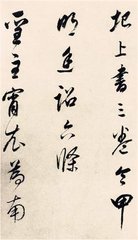 圯上書三卷令甲
明廷詔六條
聖主宵衣為南